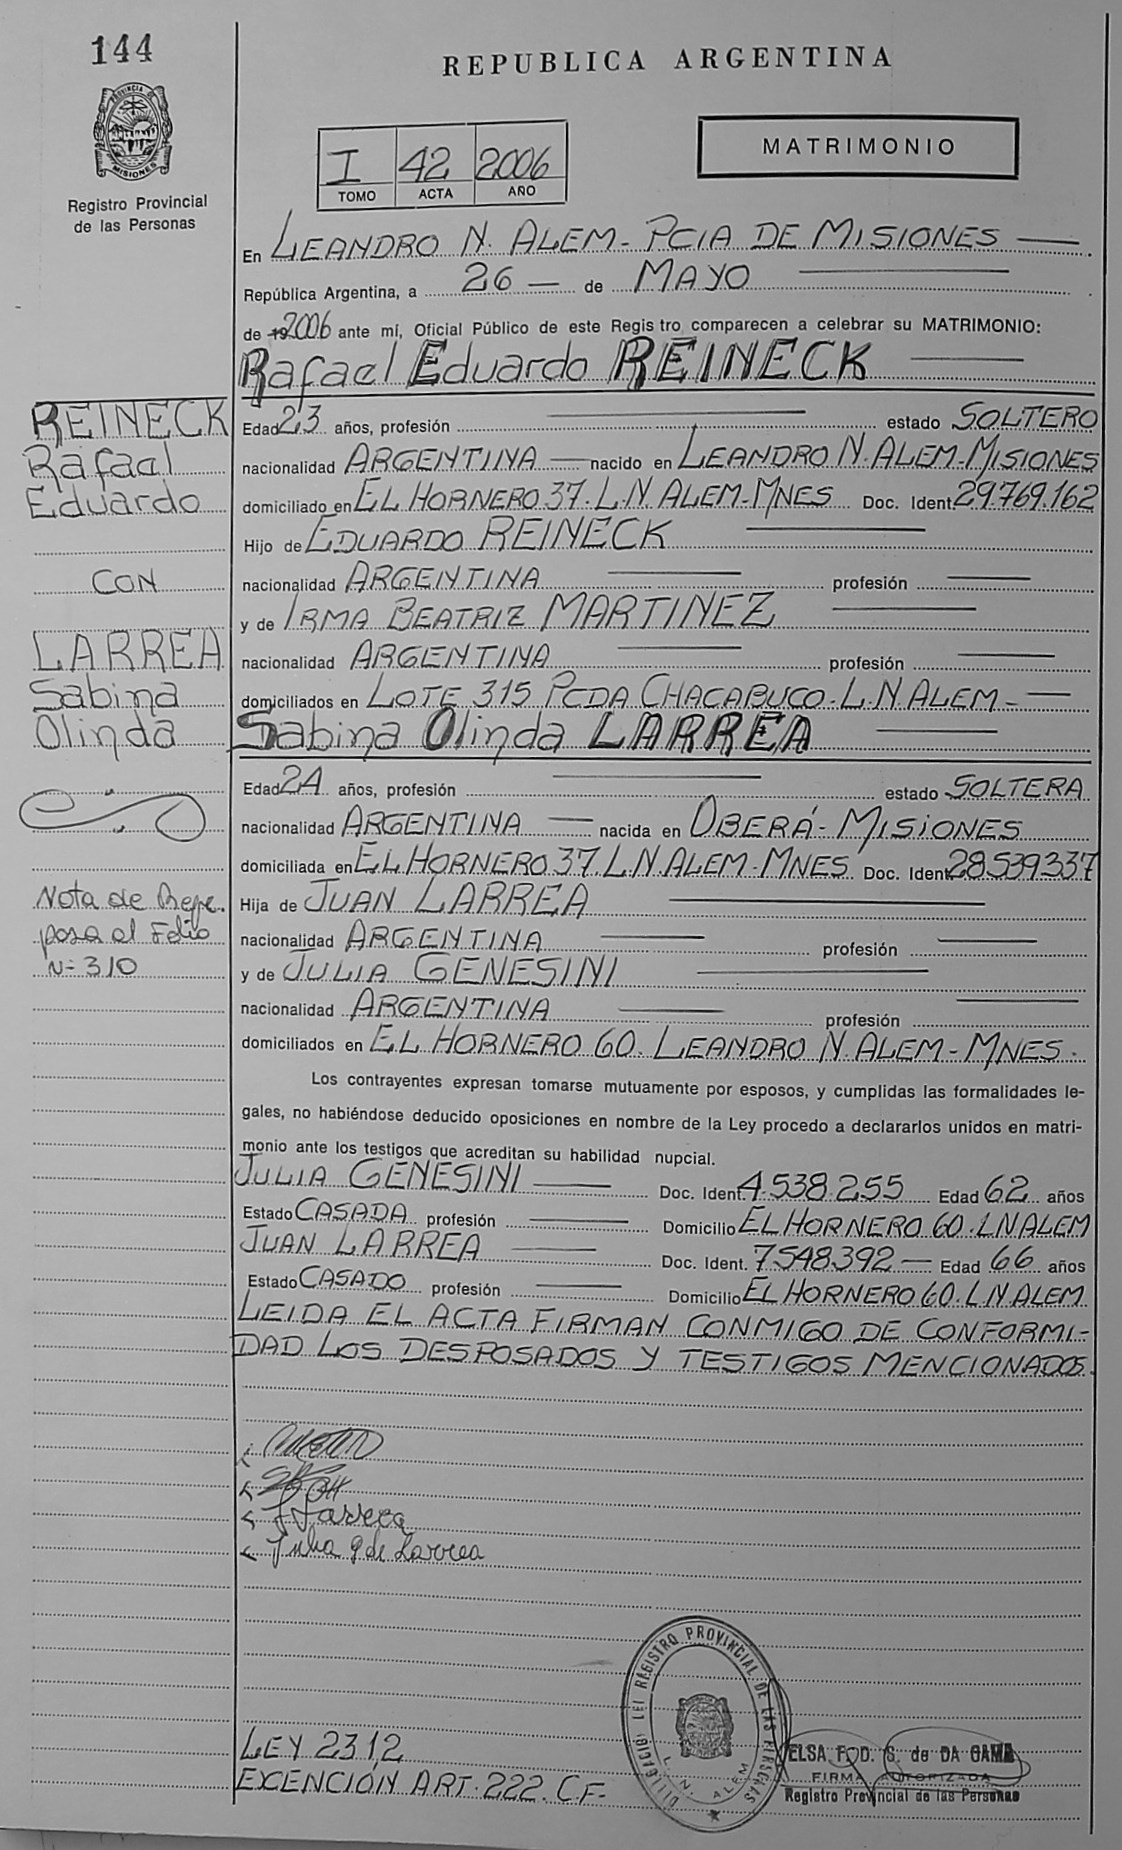 144
REPUBLICA ARGENTINA
PROVINCIA DE
MISIONES
Registro Provincial
de las Personas
MATRIMONIO
I 42 2006
TOMO ACTA AÑO
En LEANDRO N. ALEM - PCIA DE MISIONES
República Argentina, a 26 de MAYO
de 19 2006 ante mí, Oficial Público de este Registro comparecen a celebrar su MATRIMONIO:
Rafael Eduardo REINECK
REINECK
Rafael
Eduardo
CON
LARREA
Sabina
Olinda
Nota de
pasa al Folio
Nº 310
Edad 23 años, profesión estado SOLTERO
nacionalidad ARGENTINA nacido en LEANDRO N. ALEM-MISIONES
domiciliado en EL HORNERO 37. L.N. ALEM-MNES Doc. Ident. 29.769.162
Hijo de EDUARDO REINECK
nacionalidad ARGENTINA profesión
y de IRMA BEATRIZ MARTINEZ
nacionalidad ARGENTINA profesión
domiciliados en LOTE 315 PCDA CHACABUCO-L.N ALEM-
Sabina Olinda LARREA
Edad 24 años, profesión estado SOLTERA
nacionalidad ARGENTINA nacida en OBERÁ-MISIONES
domiciliada en EL HORNERO 37. L.N. ALEM-MNES Doc. Ident. 28539337
Hija de JUAN LARREA
nacionalidad ARGENTINA profesión
y de JULIA GENESINI
nacionalidad ARGENTINA profesión
domiciliados en EL HORNERO 60. LEANDRO N. ALEM-MNES.
Los contrayentes expresan tomarse mutuamente por esposos, y cumplidas las formalidades le-
gales, no habiéndose deducido oposiciones en nombre de la Ley procedo a declararlos unidos en matri-
monio ante los testigos que acreditan su habilidad nupcial.
JULIA GENESINI Doc. Ident. 4.538.255 Edad 62 años
Estado CASADA profesión Domicilio EL HORNERO 60. LN ALEM
JUAN LARREA Doc. Ident. 7548.392 Edad 66 años
Estado CASADO profesión Domicilio EL HORNERO 60. L.N ALEM
LEIDA EL ACTA FIRMAN CONMIGO DE CONFORMI-
DAD LOS DESPOSADOS Y TESTIGOS MENCIONADOS.
J Larrea
Julia G de Larrea
REGISTRO PROVINCIAL DE LAS PERSONAS
L. N. ALEM
LEY 2312
EXENCIÓN ART. 222. C.F.
ELSA F. D. S. de DA GAMA
FIRMA AUTORIZADA
Registro Provincial de las Personas